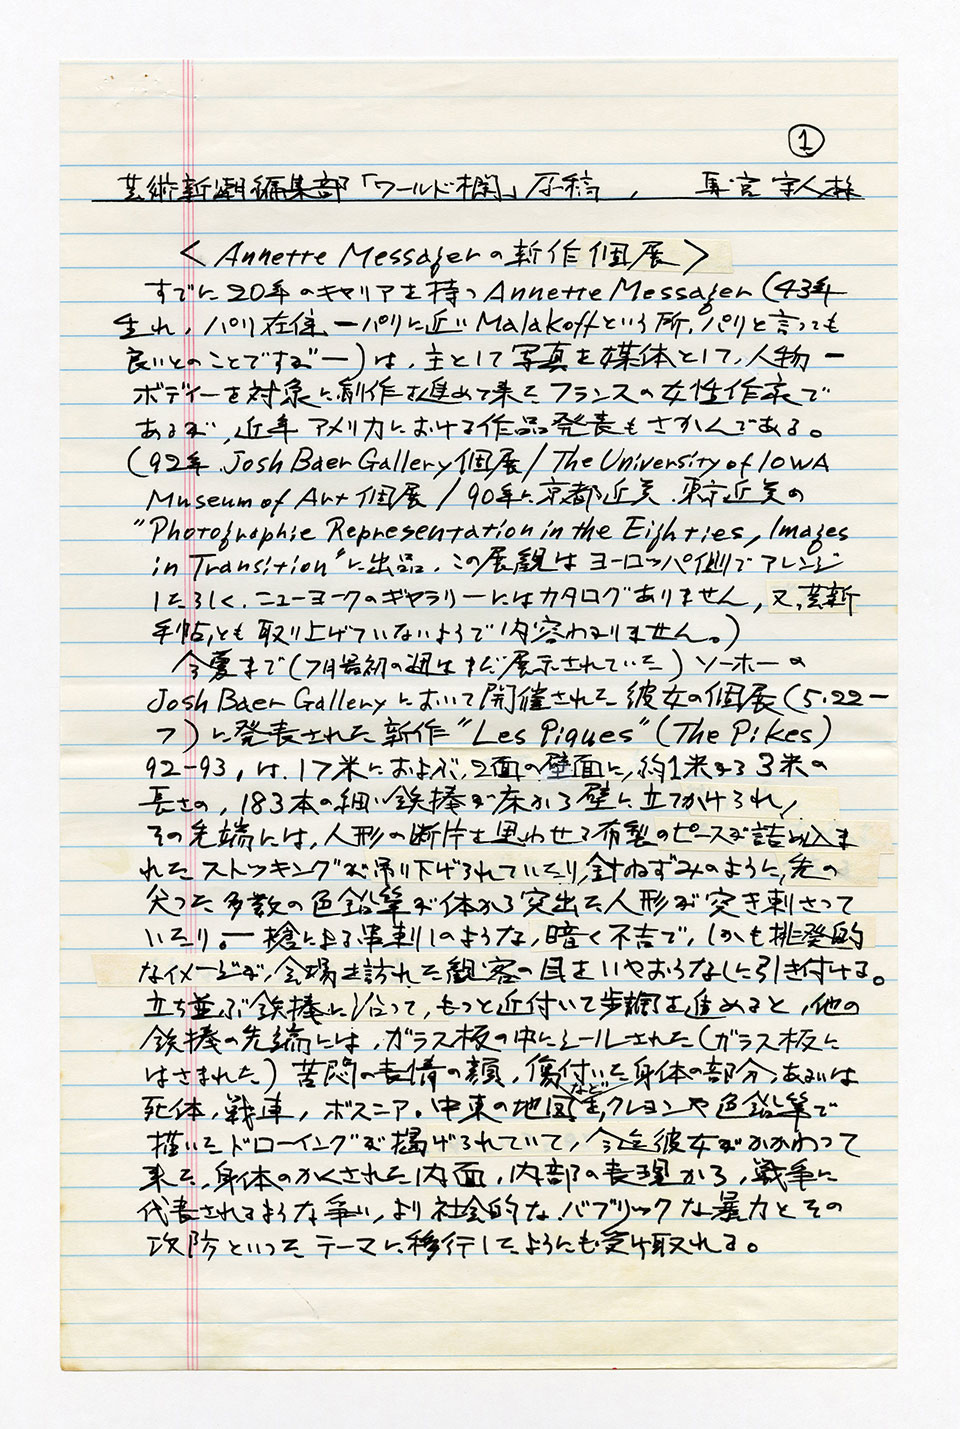 ①
芸術新潮編集部「ワールド欄」原稿, 宗人様
< Annette Messagerの新作個展 >
すでに20年のキャリアを持つ Annette Messager (43年
生れ, パリ在住, ーパリに近い Malakoffという所, パリと言っても
良いとのことですがー) は, 主として写真を媒体として, 人物ー
ボディーを対象に創作を進めて来たフランスの女性作家で
あるが, 近年アメリカにおける作品発表もさかんである。
(92年 Josh Baer Gallery個展 / The University of IOWA
Museum of Art 個展 / 90年に京都近美. 東京近美の
"Photographic Representation in the Eighties, Images
in Transition"に出品. この展観はヨーロッパ側でアレンジ
したらしく, ニューヨークのギャラリーにはカタログありません, 又, 芸新
手帖, とも取り上げていないようで内容わかりません。)
今夏まで (7月最初の週はまだ展示されていた) ソーホーの
Josh Baer Galleryにおいて開催された彼女の個展 (5.22ー
7) に発表された新作 "Les Piques" (The Pikes)
92-93, は, 17米におよぶ, 2面の壁面に, 約1米から3米の
長さの, 183本の細い鉄棒が床から壁に立てかけられ,
その先端には, 人形の断片を思わせる布製のピースが詰め込ま
れたストッキングが吊り下げられていたり, 針ねずみのように, 先の
尖った多数の色鉛筆が体から突出た人形が突き刺さって
いたり。ー槍による串刺しのような, 暗く不吉で, しかも挑発的
なイメージが, 会場を訪れた観客の目をいやおうなしに引き付ける。
立ち並ぶ鉄棒に沿って, もっと近付いて歩を進めると, 他の
鉄棒の先端には, ガラス板の中にシールされた (ガラス板に
はさまれた) 苦悶の表情の顔, 傷付いた身体の部分, あるいは
死体, 戦車, ボスニア. 中東の地図などを, クレヨンや色鉛筆で
描いたドローイングが掲げられていて, 今迄彼女がかかわって
来た, 身体のかくされた内面, 内部の表現から, 戦争に
代表されるような争い, より社会的な, パブリックな暴力とその
攻防といったテーマに移行したようにも受け取れる。